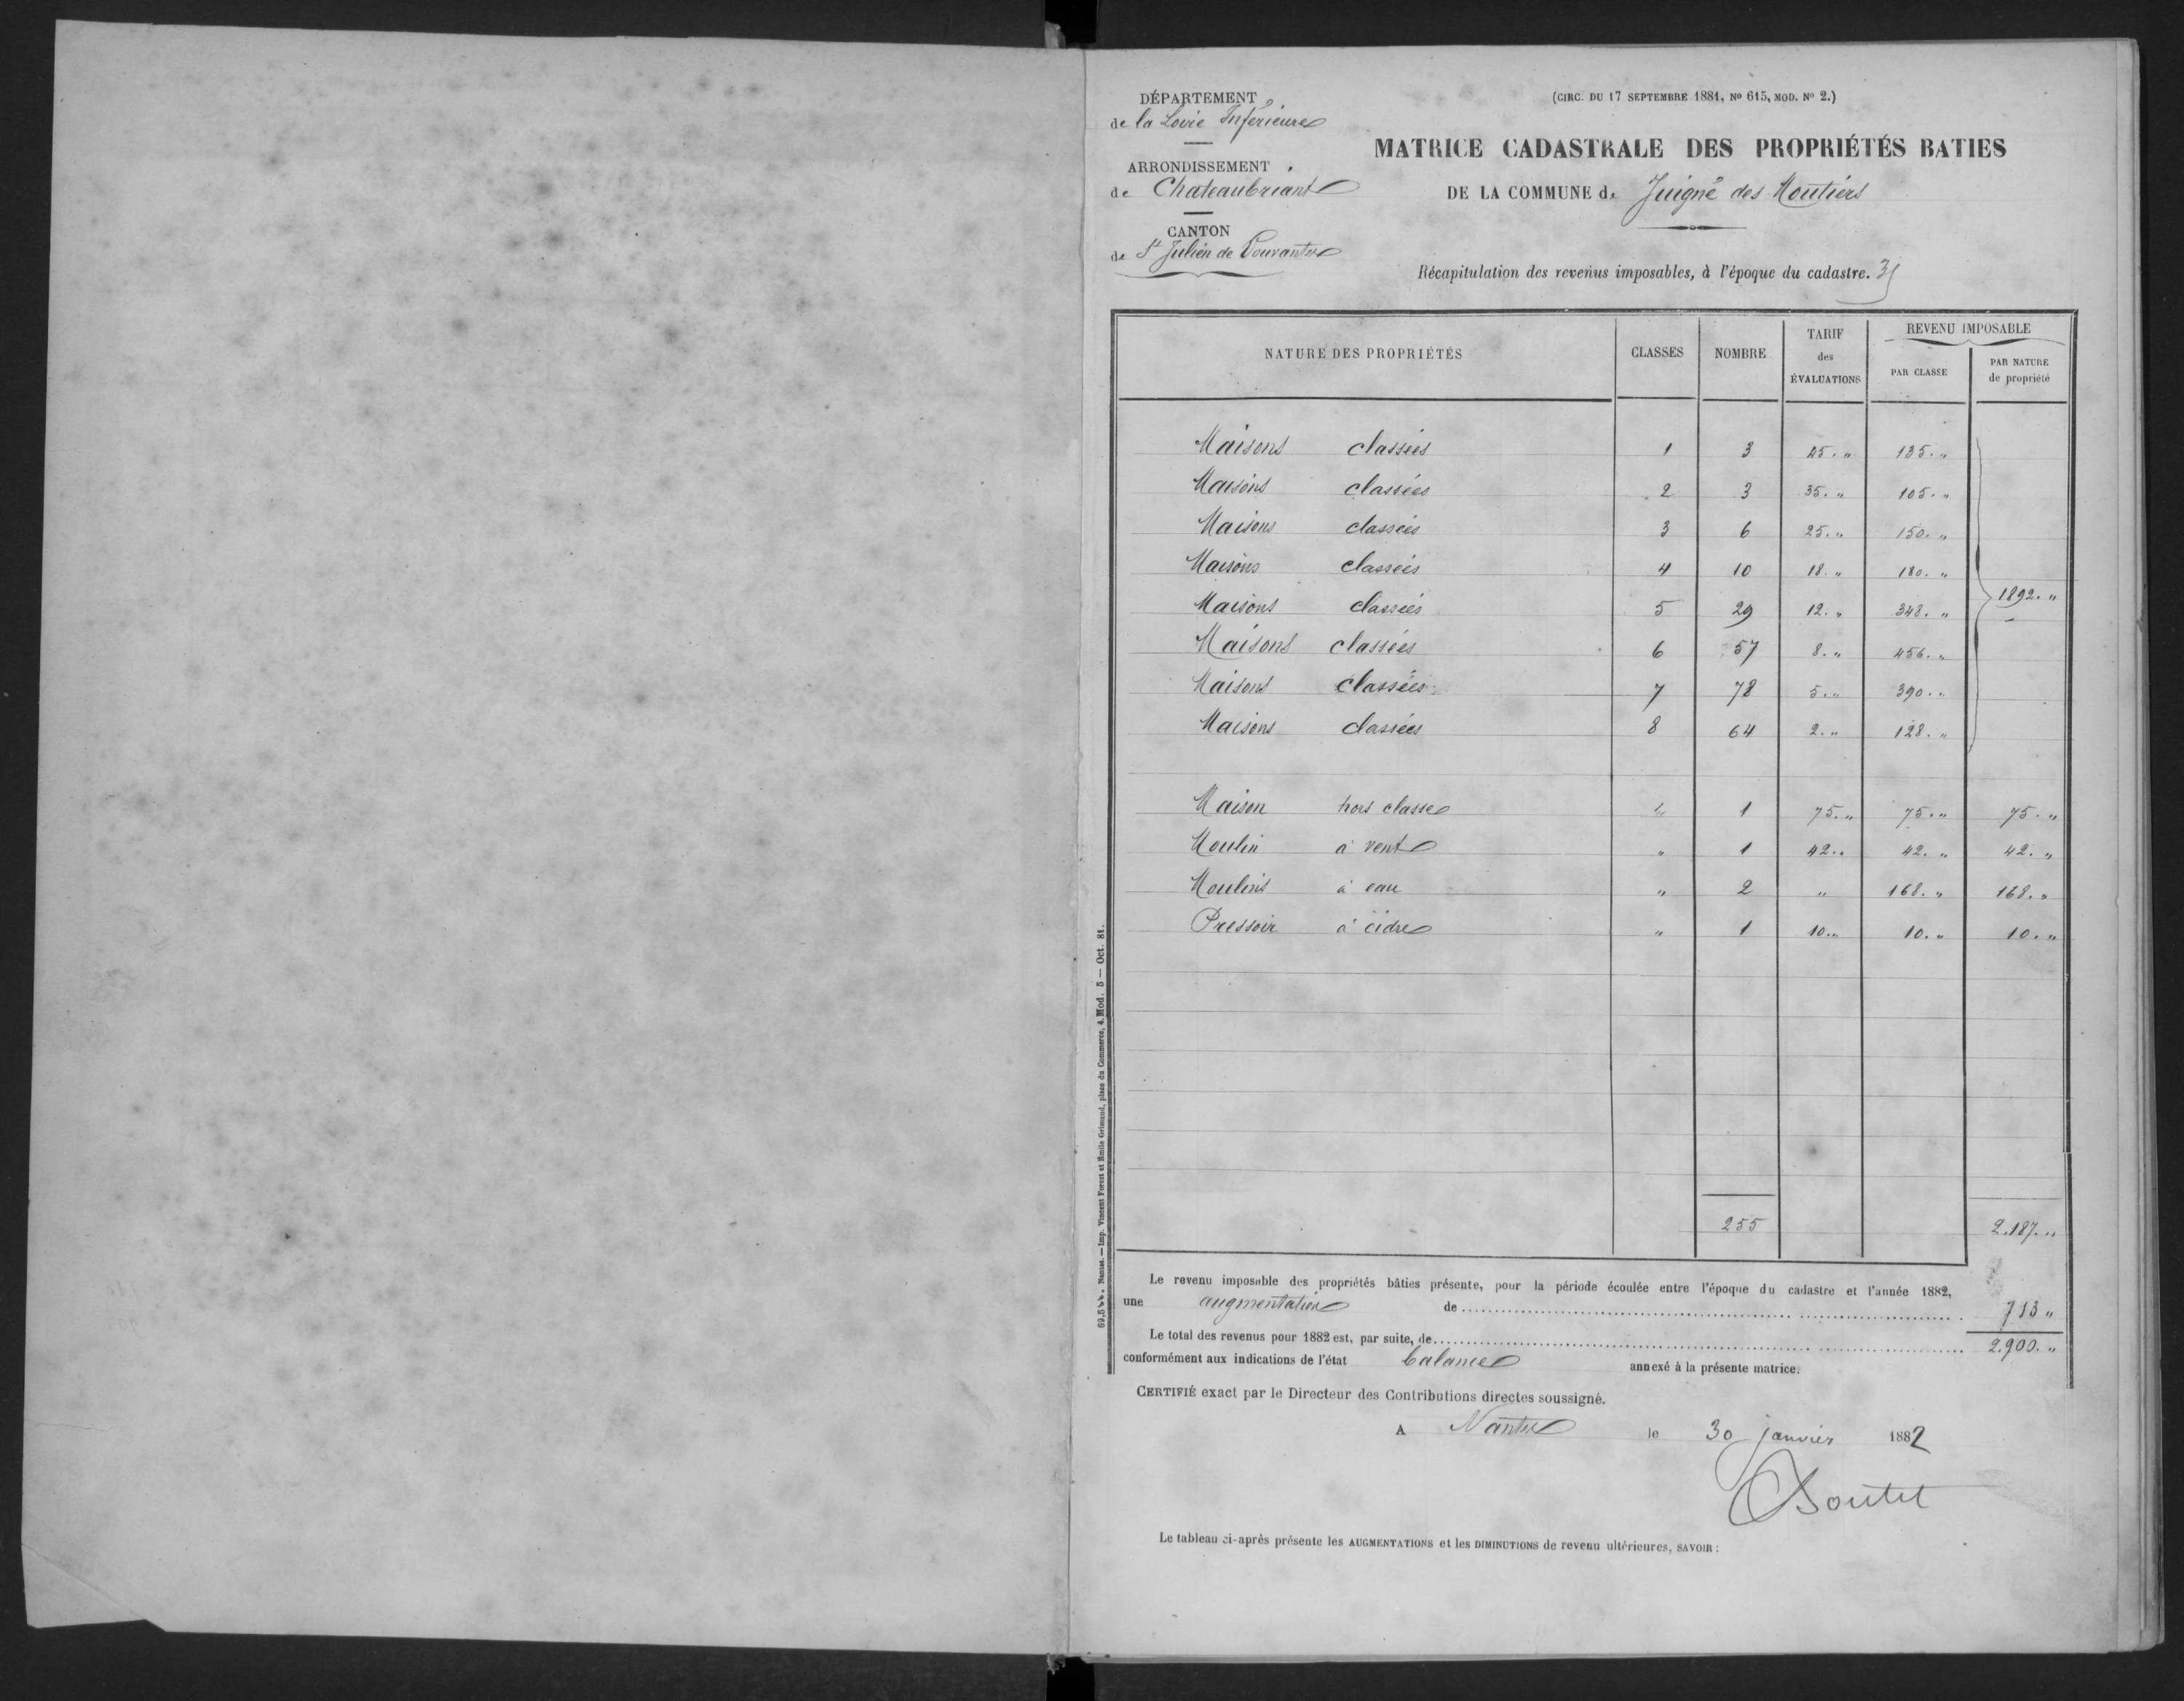 DÉPARTEMENT
de la Loire Inférieure
ARRONDISSEMENT
de Chateaubriant
CANTON
de St Julien de Vouvantes
(CIRC. DU 17 SEPTEMBRE 1881, No 615, MOD. No 2.)
MATRICE CADASTRALE DES PROPRIÉTÉS BATIES
DE LA COMMUNE de Juigné des Moutiers
Récapitulation des revenus imposables, à l'époque du cadastre.
NATURE DES PROPRIÉTÉS CLASSES NOMBRE TARIF des ÉVALUATIONS REVENU IMPOSABLE PAR CLASSE PAR NATURE de propriété
Maisons classées 1 3 45. " 135. "
Maisons classées 2 3 35. " 105. "
Maisons classées 3 6 25. " 150. "
Maisons classées 4 10 18. " 180. "
Maisons classées 5 29 12. " 348. " 1892. "
Maisons classées 6 57 8. " 456. "
Maisons classées 7 78 5. " 390. "
Maisons classées 8 64 2. " 128. "
Maison hors classe " 1 75. " 75. " 75. "
Moulin à vent " 1 42. " 42. " 42. "
Moulins à eau " 2 " 168. " 168. "
Pressoir à cidre " 1 10. " 10. " 10. "
255 2.187. "
Le revenu imposable des propriétés bâties présente, pour la période écoulée entre l'époque du cadastre et l'année 1882,
une augmentation de 713 "
Le total des revenus pour 1882 est, par suite, de 2.900. "
conformément aux indications de l'état balance annexé à la présente matrice.
CERTIFIÉ exact par le Directeur des Contributions directes soussigné.
A Nantes le 30 janvier 1882
Le tableau ci-après présente les AUGMENTATIONS et les DIMINUTIONS de revenu ultérieures, SAVOIR :
Nantes. — Imp. Vincent Forest et Emile Grimaud, place du Commerce, 4. Mod. 5 — Oct. 81.